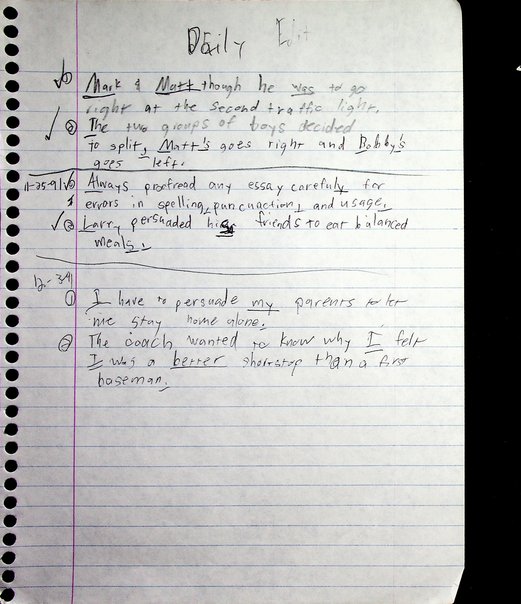 Daily Edit
① Mark & Matt though he was to go
right at the second traffic light.
② The two groups of boys decided
to split, Matt's goes right and Bobby's
goes left.
11-25-91 ① Always proofread any essay carefuly for
errors in spelling, puncuaction, and usage.
② Larry persuaded his friends to eat balanced
meals.
12-3-91
① I have to persuade my parents to let
me stay home alone.
② The coach wanted to know why I felt
I was a better shortstop than a first
baseman.